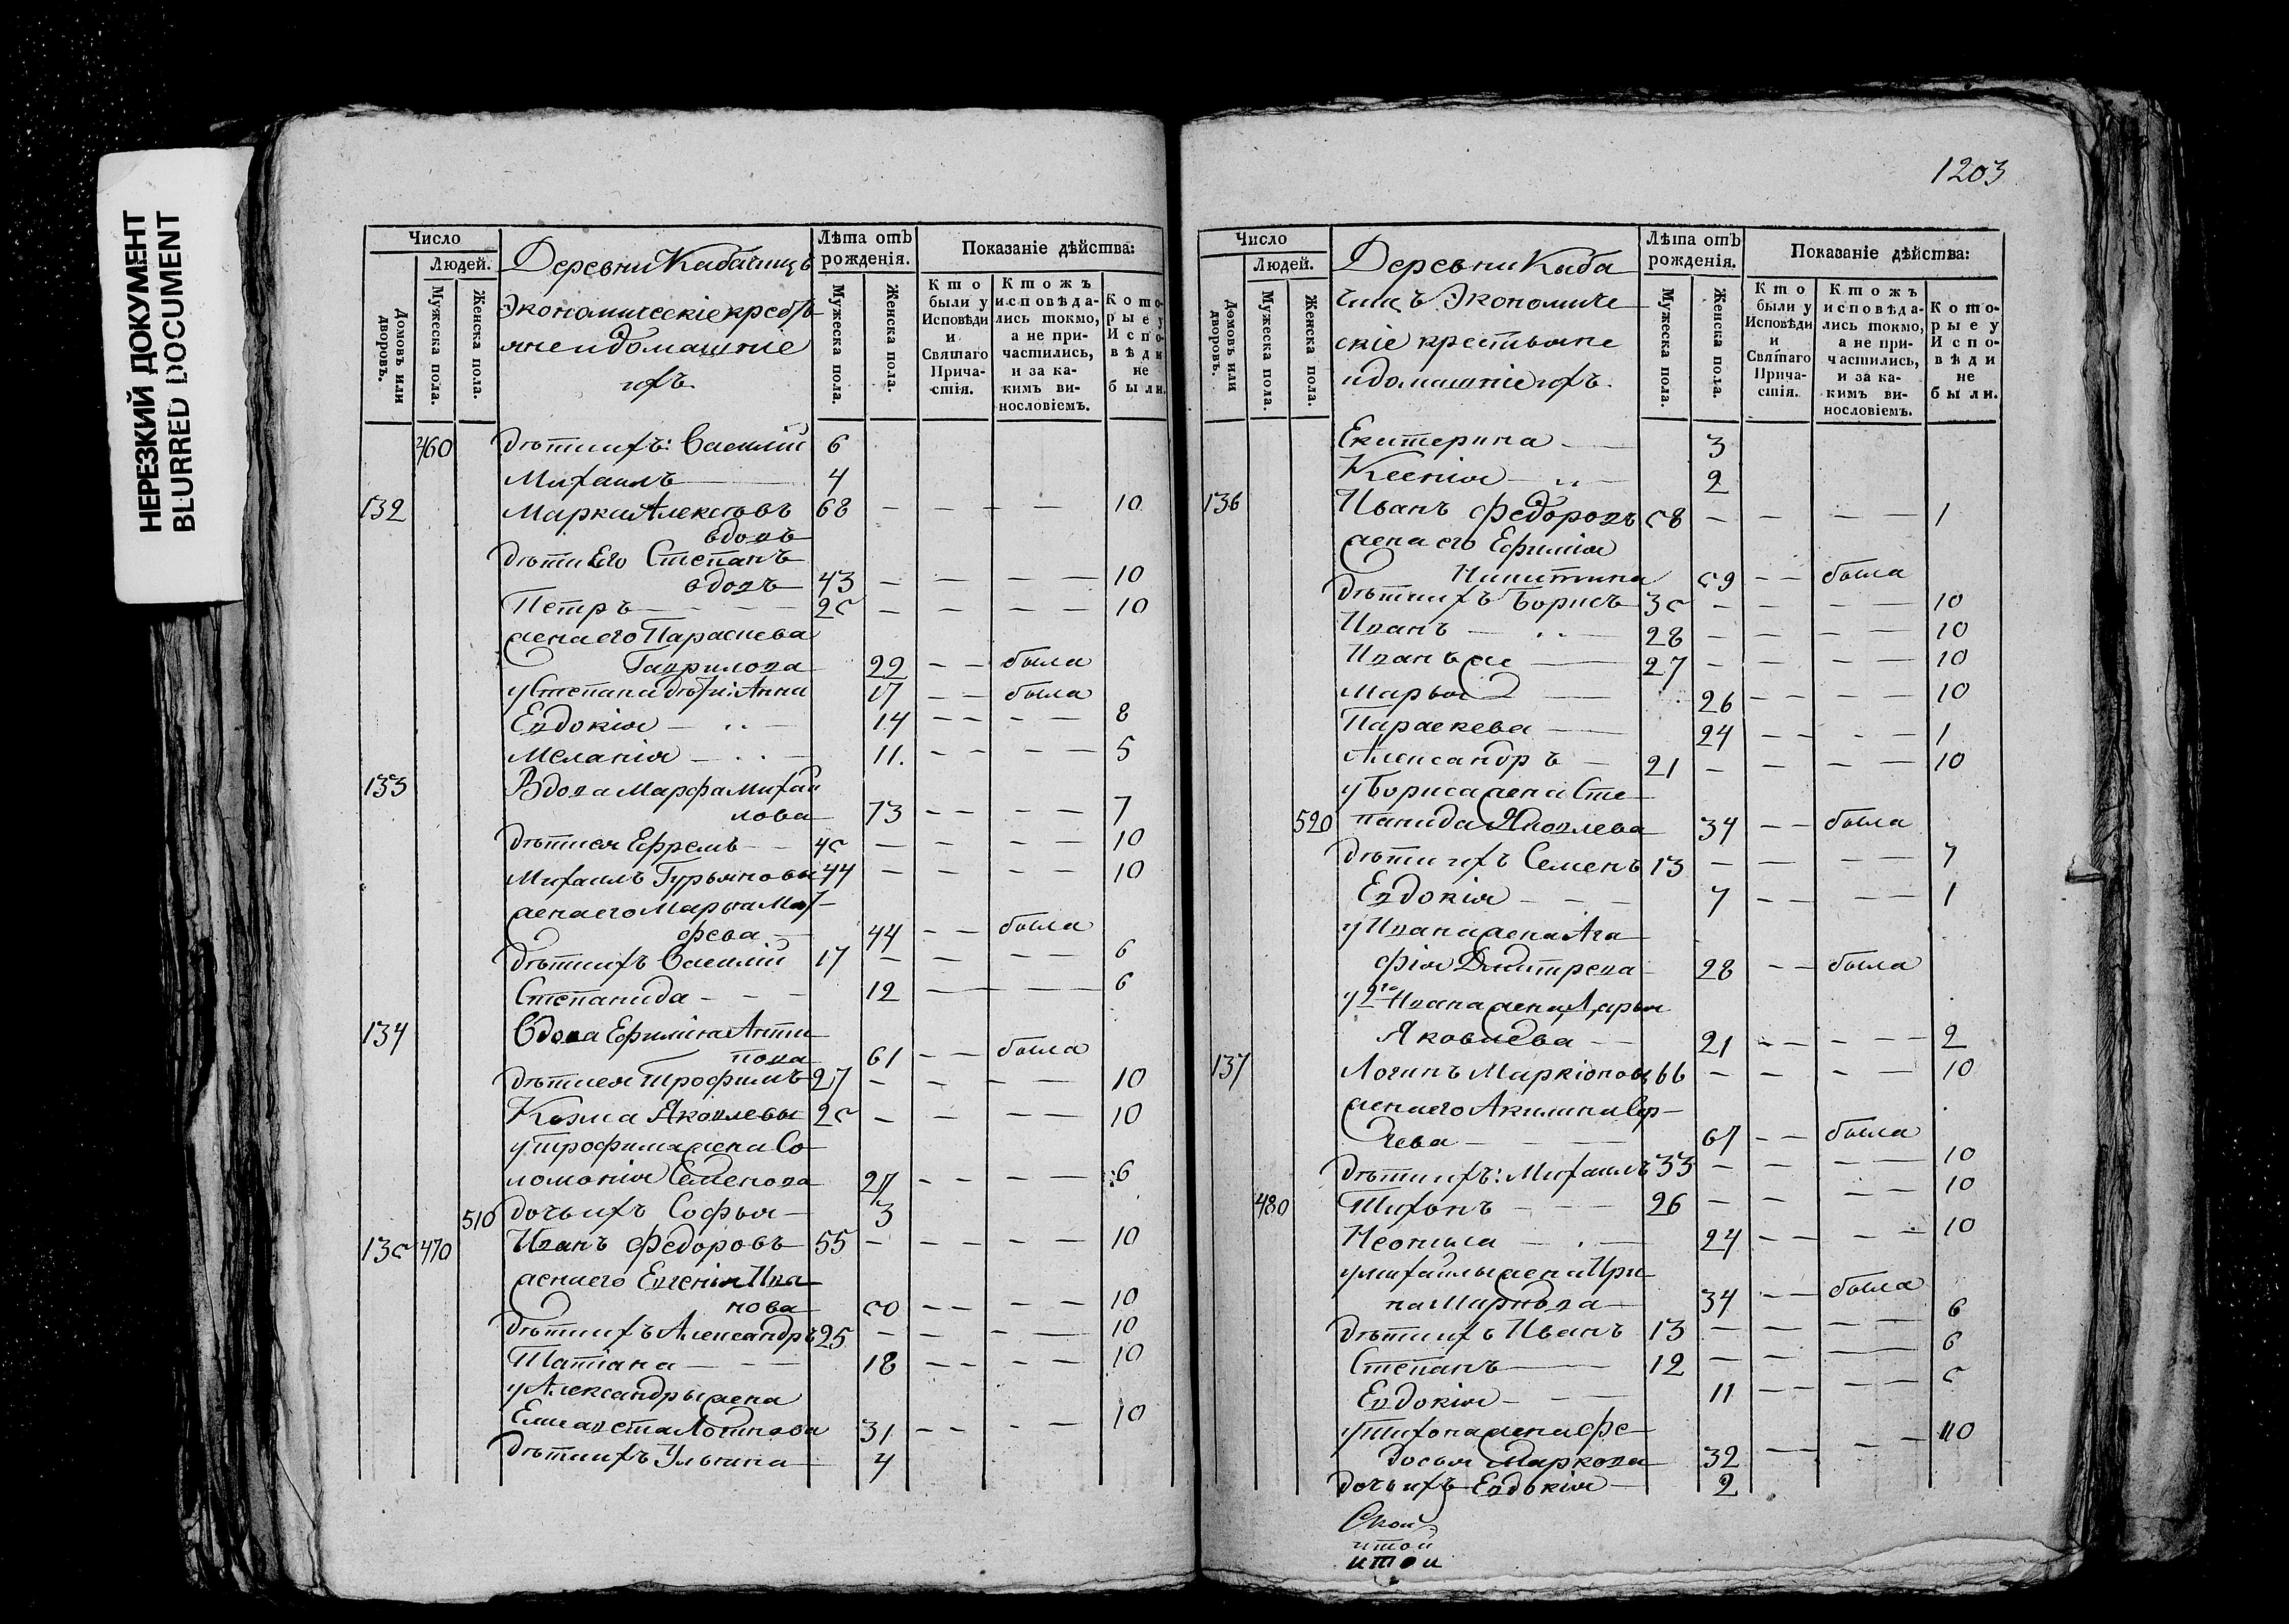 НЕРЕЗКИЙ ДОКУМЕНТ
BLURRED DOCUMENT
Число
Людей.
Домовъ или дворовъ.
Мужеска пола.
Женска пола.
Деревни Кабачищъ
Экономическіе крестъ
яне и домашніе
ихъ
Лѣта отъ рожденія.
Мужеска пола.
Женска пола.
Показаніе дѣйства:
Кто были у Исповѣди и Святаго Прича-стія.
Ктожъ исповѣда-лись токмо, а не при-частились, и за ка-кимъ ви-нословіемъ.
Кото-рые у Испо-вѣди не были.
460 дѣти ихъ: Василій 6
Михаилъ — 4
132 Марки Алексѣевъ 68 — — — — 10
вдовъ
дѣти Его Степанъ
вдовъ 43 — — — — 10
Петръ — — — 25 — — — — 10
жена его Параскева
Гаврилова 22 — — была
у Степана дѣти: Анна 17 — — была
Евдокія — 14 — — — — 8
Меланія — 11. — — — — 5
133 Вдова Марфа Михаи
лова 73 — — — — 7
дѣти ея Ефремъ — — 45 — — — — 10
Михаилъ Гурьяновы 44 — — — — 10
жена его Марья Мат
фева — 44 — — была
дѣти ихъ Василій 17 — — — — 6
Степанида — — — 12 — — — — 6
134 Вдова Ефимія Анти
пова 61 — — была
дѣти ея Трофимъ 27 — — — — 10
Козма Яковлевы 25 — — — — 10
у трофима жена Со
ломонія Семенова 27 — — — — 6
510 дочь ихъ Софья — 3
135 470 Иванъ Федоровъ 55 — — — — 10
жена его Евгенія Ива
нова 50 — — — — 10
дѣти ихъ Александръ 25 — — — — 10
Татіана — — — 18 — — — — 10
у Александры жена
Елисавета Логинова 31 — — — — 10
дѣти ихъ Ульяна 4
1203
Число
Людей.
Домовъ или дворовъ.
Мужеска пола.
Женска пола.
Деревни Каба
чищъ Экономиче
скіе крестьяне
и домашніе ихъ.
Лѣта отъ рожденія.
Мужеска пола.
Женска пола.
Показаніе дѣйства:
Кто были у Исповѣди и Святаго Прича-стія.
Ктожъ исповѣда-лись токмо, а не при-частились, и за ка-кимъ ви-нословіемъ.
Кото-рые у Испо-вѣди не были.
Екатерина — 3
Ксенія — 2
136 Иванъ Федоровъ 58 — — — — 1
жена его Ефимія
Никитина 59 — — была
дѣти ихъ Борисъ 35 — — — — 10
Иванъ — 28 — — — — 10
Иванъ же — 27 — — — — 10
Марья — 26 — — — — 10
Параскева — 24 — — — — 1
Александръ — 21 — — — — 10
у Бориса жена Сте
520 панида Яковлева 34 — — была
дѣти ихъ Семенъ 13 — — — — 7
Евдокія — — — 7 — — — — 1
у Ивана жена Ага
фія Дмитрева 28 — — была
у 2го Ивана жена Дарья
Яковлева — — 21 — — — — 2
137 Логинъ Маркіоновъ 66 — — — — 10
жена его Акилина Сер
гева — — 67 — — была
дѣти ихъ: Михаилъ 33 — — — — 10
480 Тихонъ — — — 26 — — — — 10
Неонила — 24 — — — — 10
у михаилы жена Ири
на Маркова — 34 — — была
дѣти ихъ Иванъ 13 — — — — 6
Степанъ — 12 — — — — 6
Евдокія — — 11 — — — — 5
у Тихона жена Фе
досья Маркова 32 — — — — 10
дочь ихъ Евдокія — 2
итои
итои